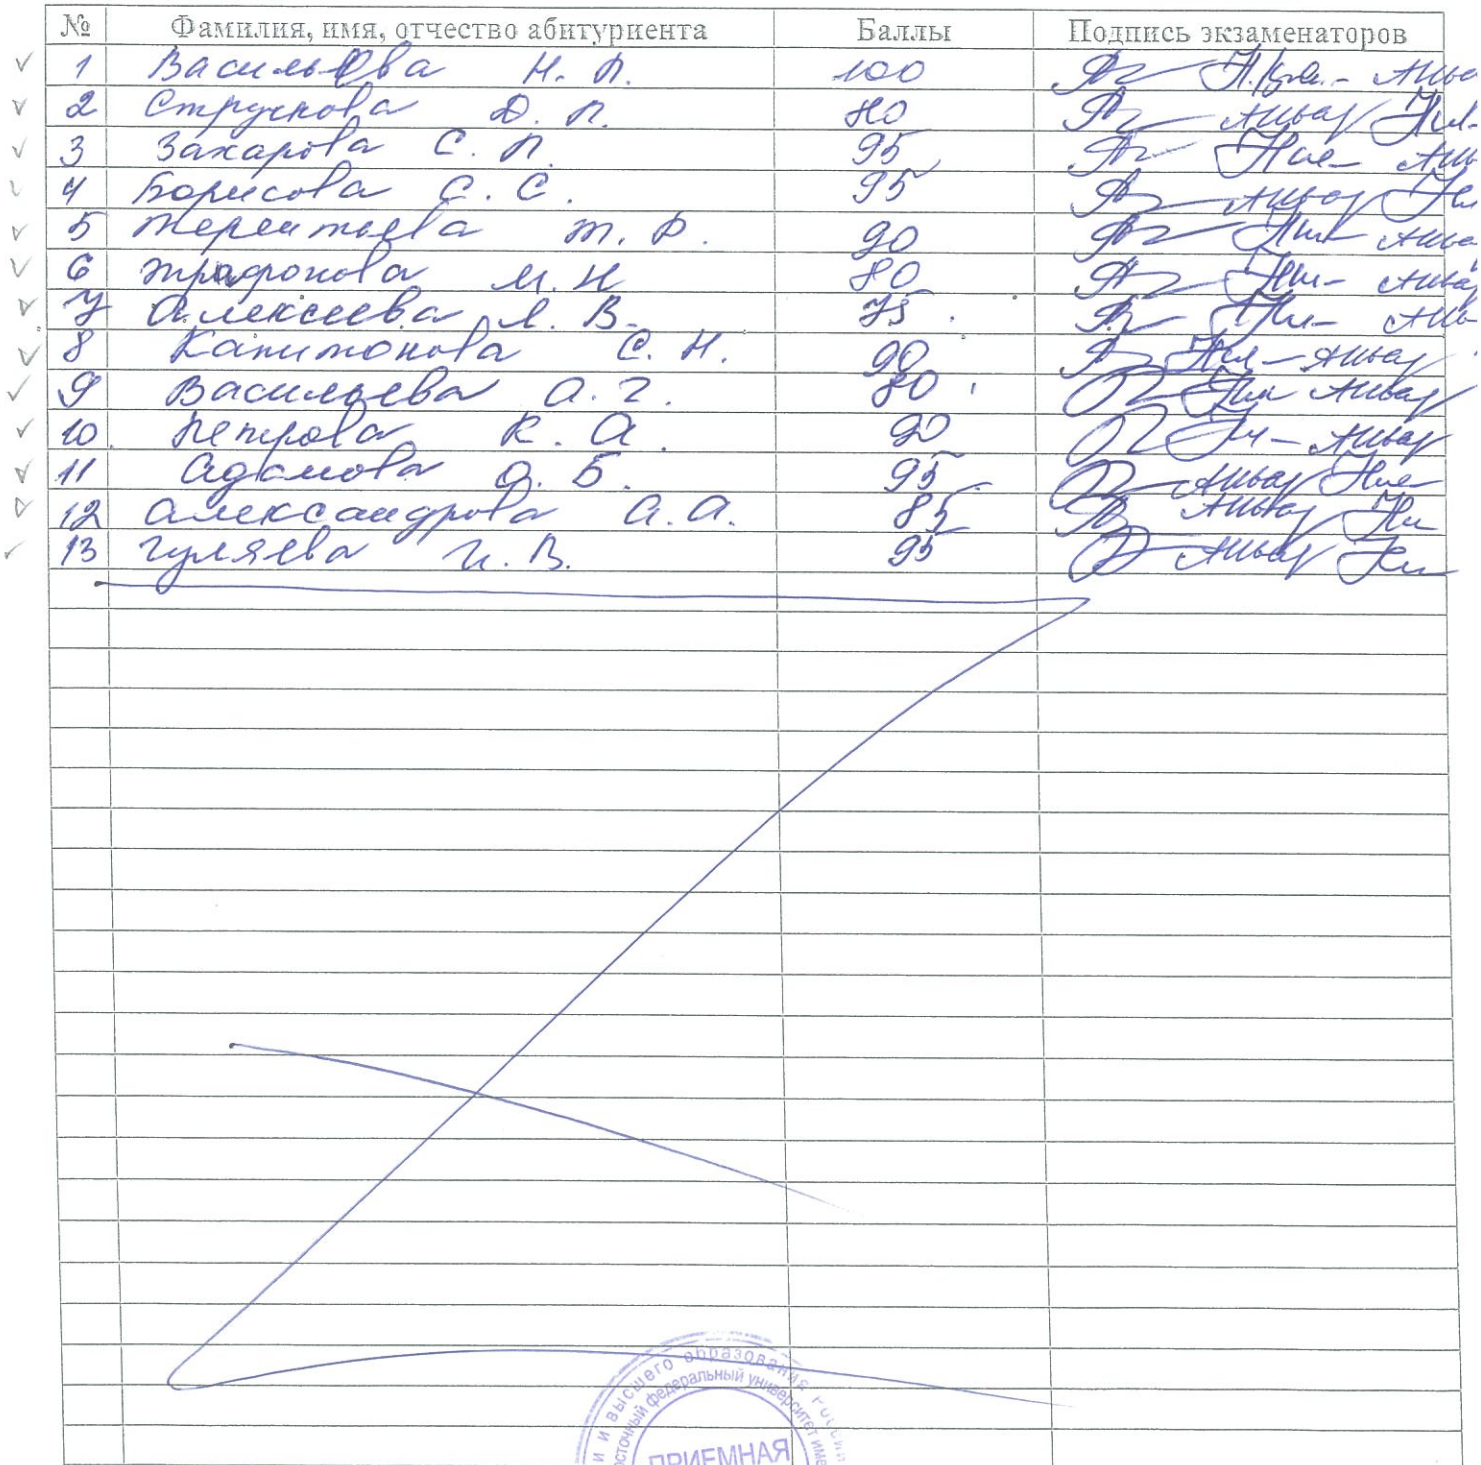 № Фамилия, имя, отчество абитуриента Баллы Подпись экзаменаторов
1 Васильева Н. П. 100
2 Стручкова Д. П. 80
3 Захарова С. П. 95
4 Борисова С. С. 95
5 Терентьева Т. Ф. 90
6 Трофонова М. Н 80
7 Алексеева Л. В. 75
8 Капитонова С. Н. 90
9 Васильева А. Г. 80
10. Петрова К. А. 90
11 Адамова О. Б. 95
12 Александрова А. А. 85
13 Гуляева И. В. 95
и высшего образования России
восточный федеральный университет име
ПРИЕМНАЯ